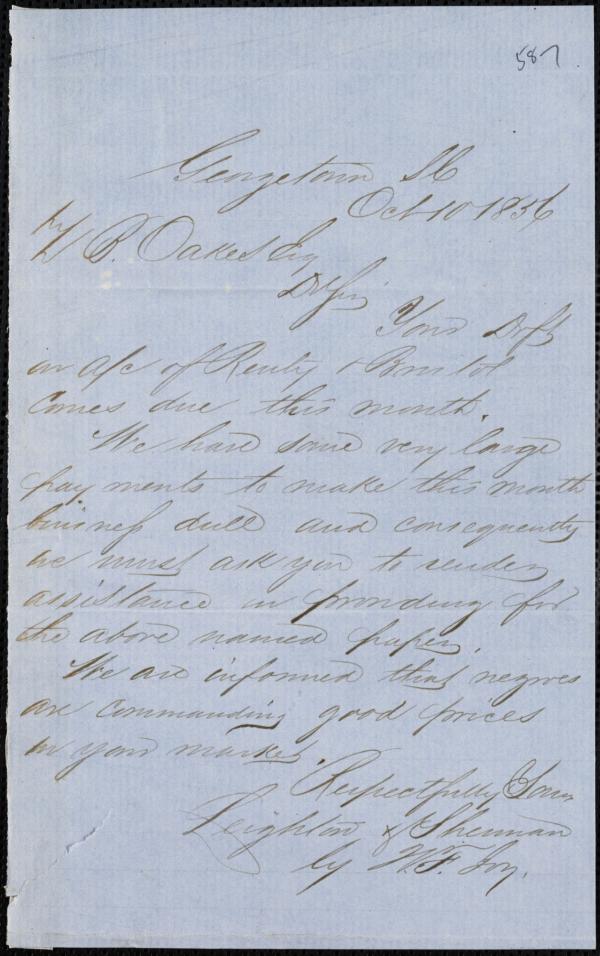 587
Georgetown SC
Oct 10 1856
Z B. Oakes Esq
Dr Sir
Your Dft
on a/c of Renty & Bristol
Comes due this month.
We have some very large
payments to make this month
business dull and consequently
we must ask you to render
assistance in providing for
the above named paper.
We are informed that negroes
are commanding good prices
in your market.
Respectfully Yours
Leighton & Sherman
by W. F. Joy.